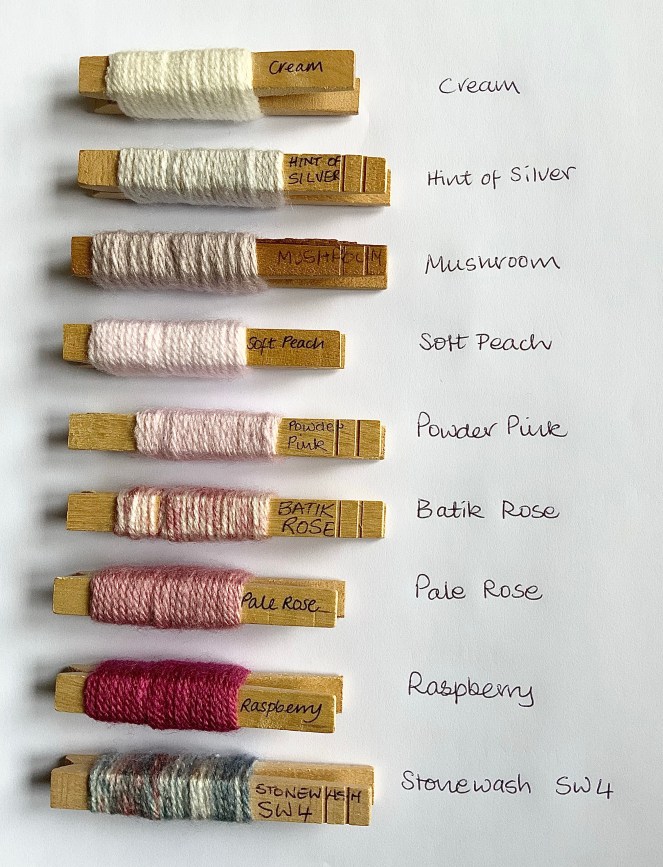 Cream Cream
HINT OF
SILVER Hint of Silver
MUSHROOM Mushroom
Soft Peach Soft Peach
Powder
Pink Powder Pink
BATIK
ROSE Batik Rose
Pale Rose Pale Rose
Raspberry Raspberry
STONEWASH
SW4 Stonewash SW4